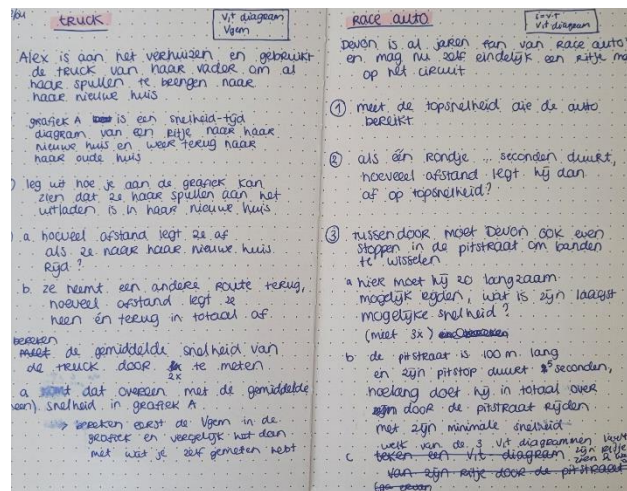 TRUCK
v,t diagram
Vgem
Alex is aan het verhuizen en gebruikt
de truck van haar vader om al
haar spullen te brengen naar
haar nieuwe huis
grafiek A is een snelheid-tijd
diagram van een ritje naar haar
nieuwe huis en weer terug naar
haar oude huis
leg uit hoe je aan de grafiek kan
zien dat ze haar spullen aan het
uitladen is in haar nieuwe huis
a. hoeveel afstand legt ze af
als ze naar haar nieuwe huis
rijd ?
b. ze neemt een andere route terug,
hoeveel afstand legt ze
heen én terug in totaal af.
bereken
meet de gemiddelde snelheid van
de truck door te meten
2x
a komt dat overeen met de gemiddelde
snelheid in grafiek A
→ bereken eerst de Vgem in de
grafiek en vergelijk het dan
met wat je zelf gemeten hebt
RACE AUTO
s=v·t
v,t diagram
Devon is al jaren fan van race auto's
en mag nu zelf eindelijk een ritje
op het circuit
① meet de topsnelheid die de auto
bereikt
② als één rondje ... seconden duurt,
hoeveel afstand legt hij dan
af op topsnelheid?
③ tussendoor moet Devon ook even
stoppen in de pitstraat om banden
te wisselen
a hier moet hij zo langzaam
mogelijk rijden, wat is zijn laagst
mogelijke snelheid ?
(meet 3x)
b de pitstraat is 100 m lang
en zijn pitstop duurt 5 seconden,
hoelang doet hij in totaal over
door de pitstraat rijden
met zijn minimale snelheid
welk van de 3 v,t diagrammen
zijn ritje
c teken een v,t diagram
van zijn ritje door de pitstraat